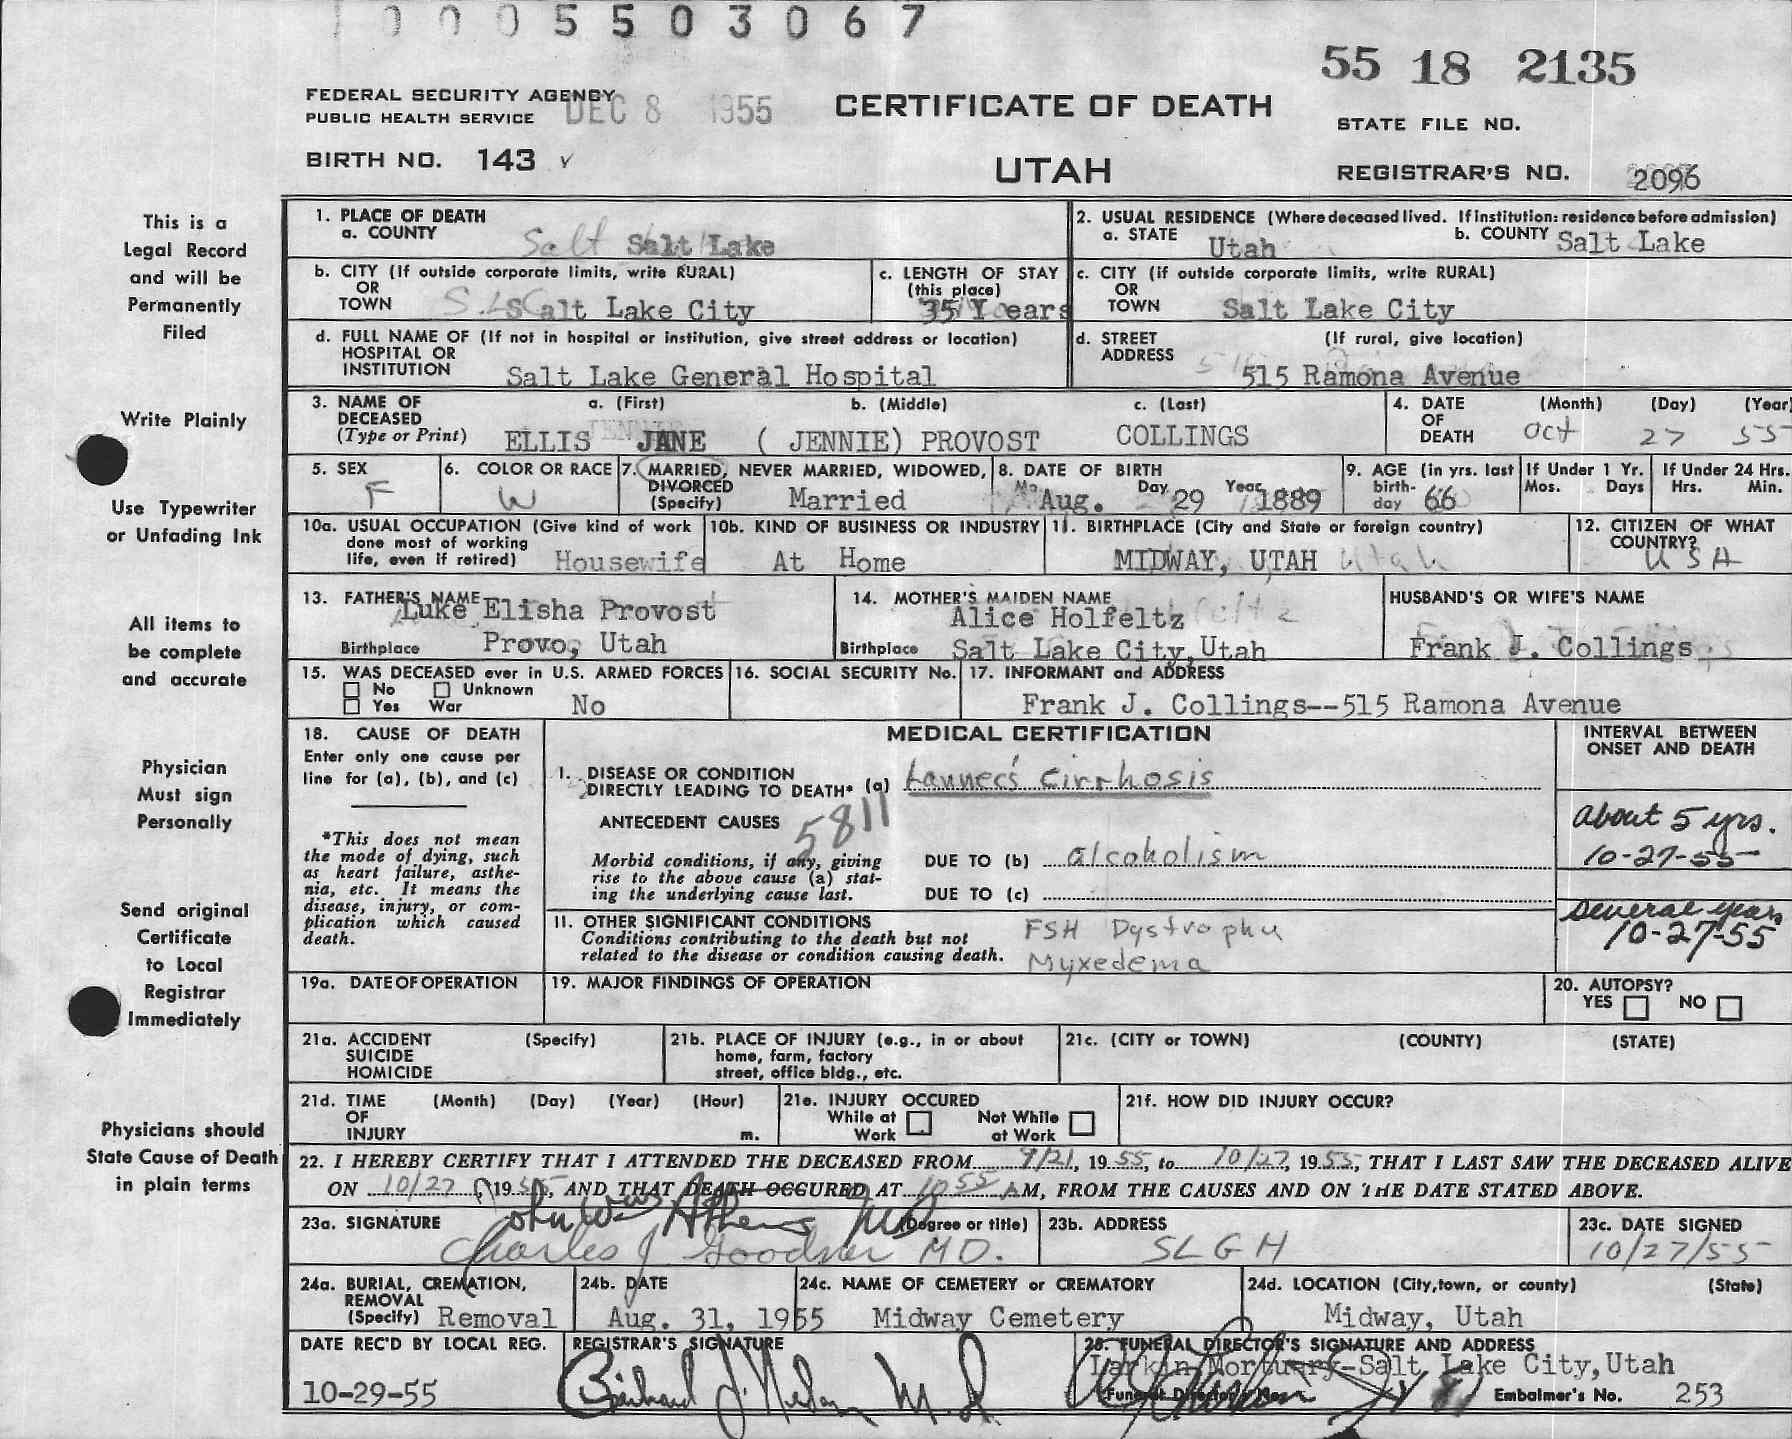 0 0 0 5 5 0 3 0 6 7
55 18 2135
FEDERAL SECURITY AGENCY
PUBLIC HEALTH SERVICE
DEC 8 1955
CERTIFICATE OF DEATH
STATE FILE NO.
BIRTH NO. 143
UTAH
REGISTRAR'S NO. 2096
This is a
Legal Record
and will be
Permanently
Filed
Write Plainly
Use Typewriter
or Unfading Ink
All items to
be complete
and accurate
Physician
Must sign
Personally
Send original
Certificate
to Local
Registrar
Immediately
Physicians should
State Cause of Death
in plain terms
1. PLACE OF DEATH
a. COUNTY Salt Salt Lake
2. USUAL RESIDENCE (Where deceased lived. If institution: residence before admission)
a. STATE Utah b. COUNTY Salt Lake
b. CITY (If outside corporate limits, write RURAL)
OR
TOWN Salt Lake City
c. LENGTH OF STAY
(this place)
35 Years
c. CITY (if outside corporate limits, write RURAL)
OR
TOWN Salt Lake City
d. FULL NAME OF (If not in hospital or institution, give street address or location)
HOSPITAL OR
INSTITUTION Salt Lake General Hospital
d. STREET (If rural, give location)
ADDRESS
515 Ramona Avenue
3. NAME OF DECEASED
(Type or Print)
a. (First) b. (Middle) c. (Last)
ELLIS JANE ( JENNIE) PROVOST COLLINGS
4. DATE OF DEATH
(Month) (Day) (Year)
Oct 27 55
5. SEX
F
6. COLOR OR RACE
W
7. MARRIED, NEVER MARRIED, WIDOWED,
DIVORCED
(Specify) Married
8. DATE OF BIRTH
Mo. Day Year
Aug. 29 1889
9. AGE (in yrs. last
birth-
day 66
If Under 1 Yr.
Mos. Days
If Under 24 Hrs.
Hrs. Min.
10a. USUAL OCCUPATION (Give kind of work
done most of working
life, even if retired) Housewife
10b. KIND OF BUSINESS OR INDUSTRY
At Home
11. BIRTHPLACE (City and State or foreign country)
MIDWAY, UTAH Utah
12. CITIZEN OF WHAT
COUNTRY?
USA
13. FATHER'S NAME
Luke Elisha Provost
Birthplace Provo, Utah
14. MOTHER'S MAIDEN NAME
Alice Holfeltz
Birthplace Salt Lake City, Utah
HUSBAND'S OR WIFE'S NAME
Frank J. Collings
15. WAS DECEASED ever in U.S. ARMED FORCES
No Unknown
Yes War No
16. SOCIAL SECURITY No.
17. INFORMANT and ADDRESS
Frank J. Collings--515 Ramona Avenue
18. CAUSE OF DEATH
Enter only one cause per
line for (a), (b), and (c)
*This does not mean
the mode of dying, such
as heart failure, asthe-
nia, etc. It means the
disease, injury, or com-
plication which caused
death.
MEDICAL CERTIFICATION
INTERVAL BETWEEN
ONSET AND DEATH
I. DISEASE OR CONDITION
DIRECTLY LEADING TO DEATH* (a) Lannec's Cirrhosis
ANTECEDENT CAUSES
5811
about 5 yrs.
10-27-55
Morbid conditions, if any, giving
rise to the above cause (a) stat-
ing the underlying cause last.
DUE TO (b) alcoholism
DUE TO (c)
II. OTHER SIGNIFICANT CONDITIONS
Conditions contributing to the death but not
related to the disease or condition causing death.
FSH Dystrophy
Myxedema
several years
10-27-55
19a. DATE OF OPERATION
19. MAJOR FINDINGS OF OPERATION
20. AUTOPSY?
YES NO
21a. ACCIDENT (Specify)
SUICIDE
HOMICIDE
21b. PLACE OF INJURY (e.g., in or about
home, farm, factory
street, office bldg., etc.
21c. (CITY or TOWN) (COUNTY) (STATE)
21d. TIME (Month) (Day) (Year) (Hour)
OF
INJURY m.
21e. INJURY OCCURED
While at Work Not While at Work
21f. HOW DID INJURY OCCUR?
22. I HEREBY CERTIFY THAT I ATTENDED THE DECEASED FROM 9/21, 1955, to 10/27, 1955, THAT I LAST SAW THE DECEASED ALIVE
ON 10/27 1955, AND THAT DEATH OCCURED AT 1055 AM, FROM THE CAUSES AND ON THE DATE STATED ABOVE.
23a. SIGNATURE (Degree or title)
Charles J Goodner MD.
23b. ADDRESS
SLGH
23c. DATE SIGNED
10/27/55
24a. BURIAL, CREMATION,
REMOVAL
(Specify) Removal
24b. DATE
Aug. 31, 1955
24c. NAME OF CEMETERY or CREMATORY
Midway Cemetery
24d. LOCATION (City, town, or county) (State)
Midway, Utah
DATE REC'D BY LOCAL REG.
10-29-55
REGISTRAR'S SIGNATURE
25. FUNERAL DIRECTOR'S SIGNATURE AND ADDRESS
Larkin Mortuary-Salt Lake City, Utah
Embalmer's No. 253